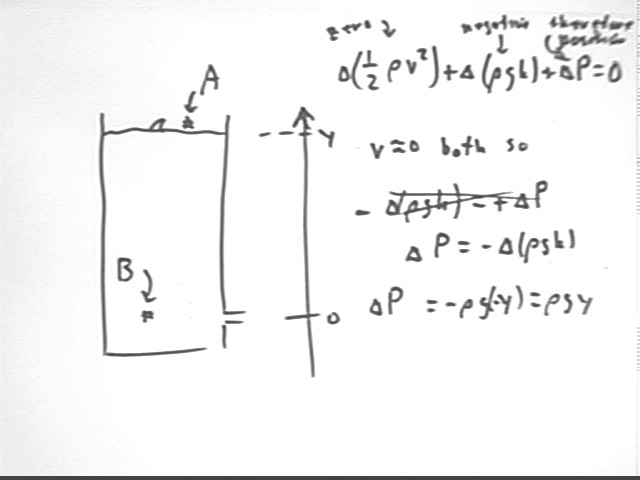 zero negative therefore positive
Δ(½ρv²)+Δ(ρgh)+ΔP=0
A
y
v≈0 both so
- Δ(ρgh) = +ΔP
ΔP = -Δ(ρgh)
B
0
ΔP = -ρg(-y) = ρgy